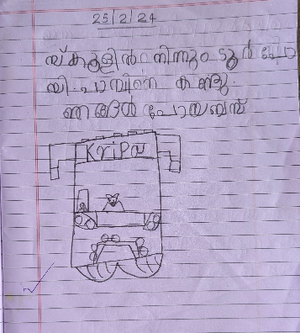 25/2/24
സ്കൂളിൽ നിന്നും ടൂർ പോ
യി. പാമ്പിനെ കണ്ടു.
ഞങ്ങൾ പോയ ബസ്
KriPa